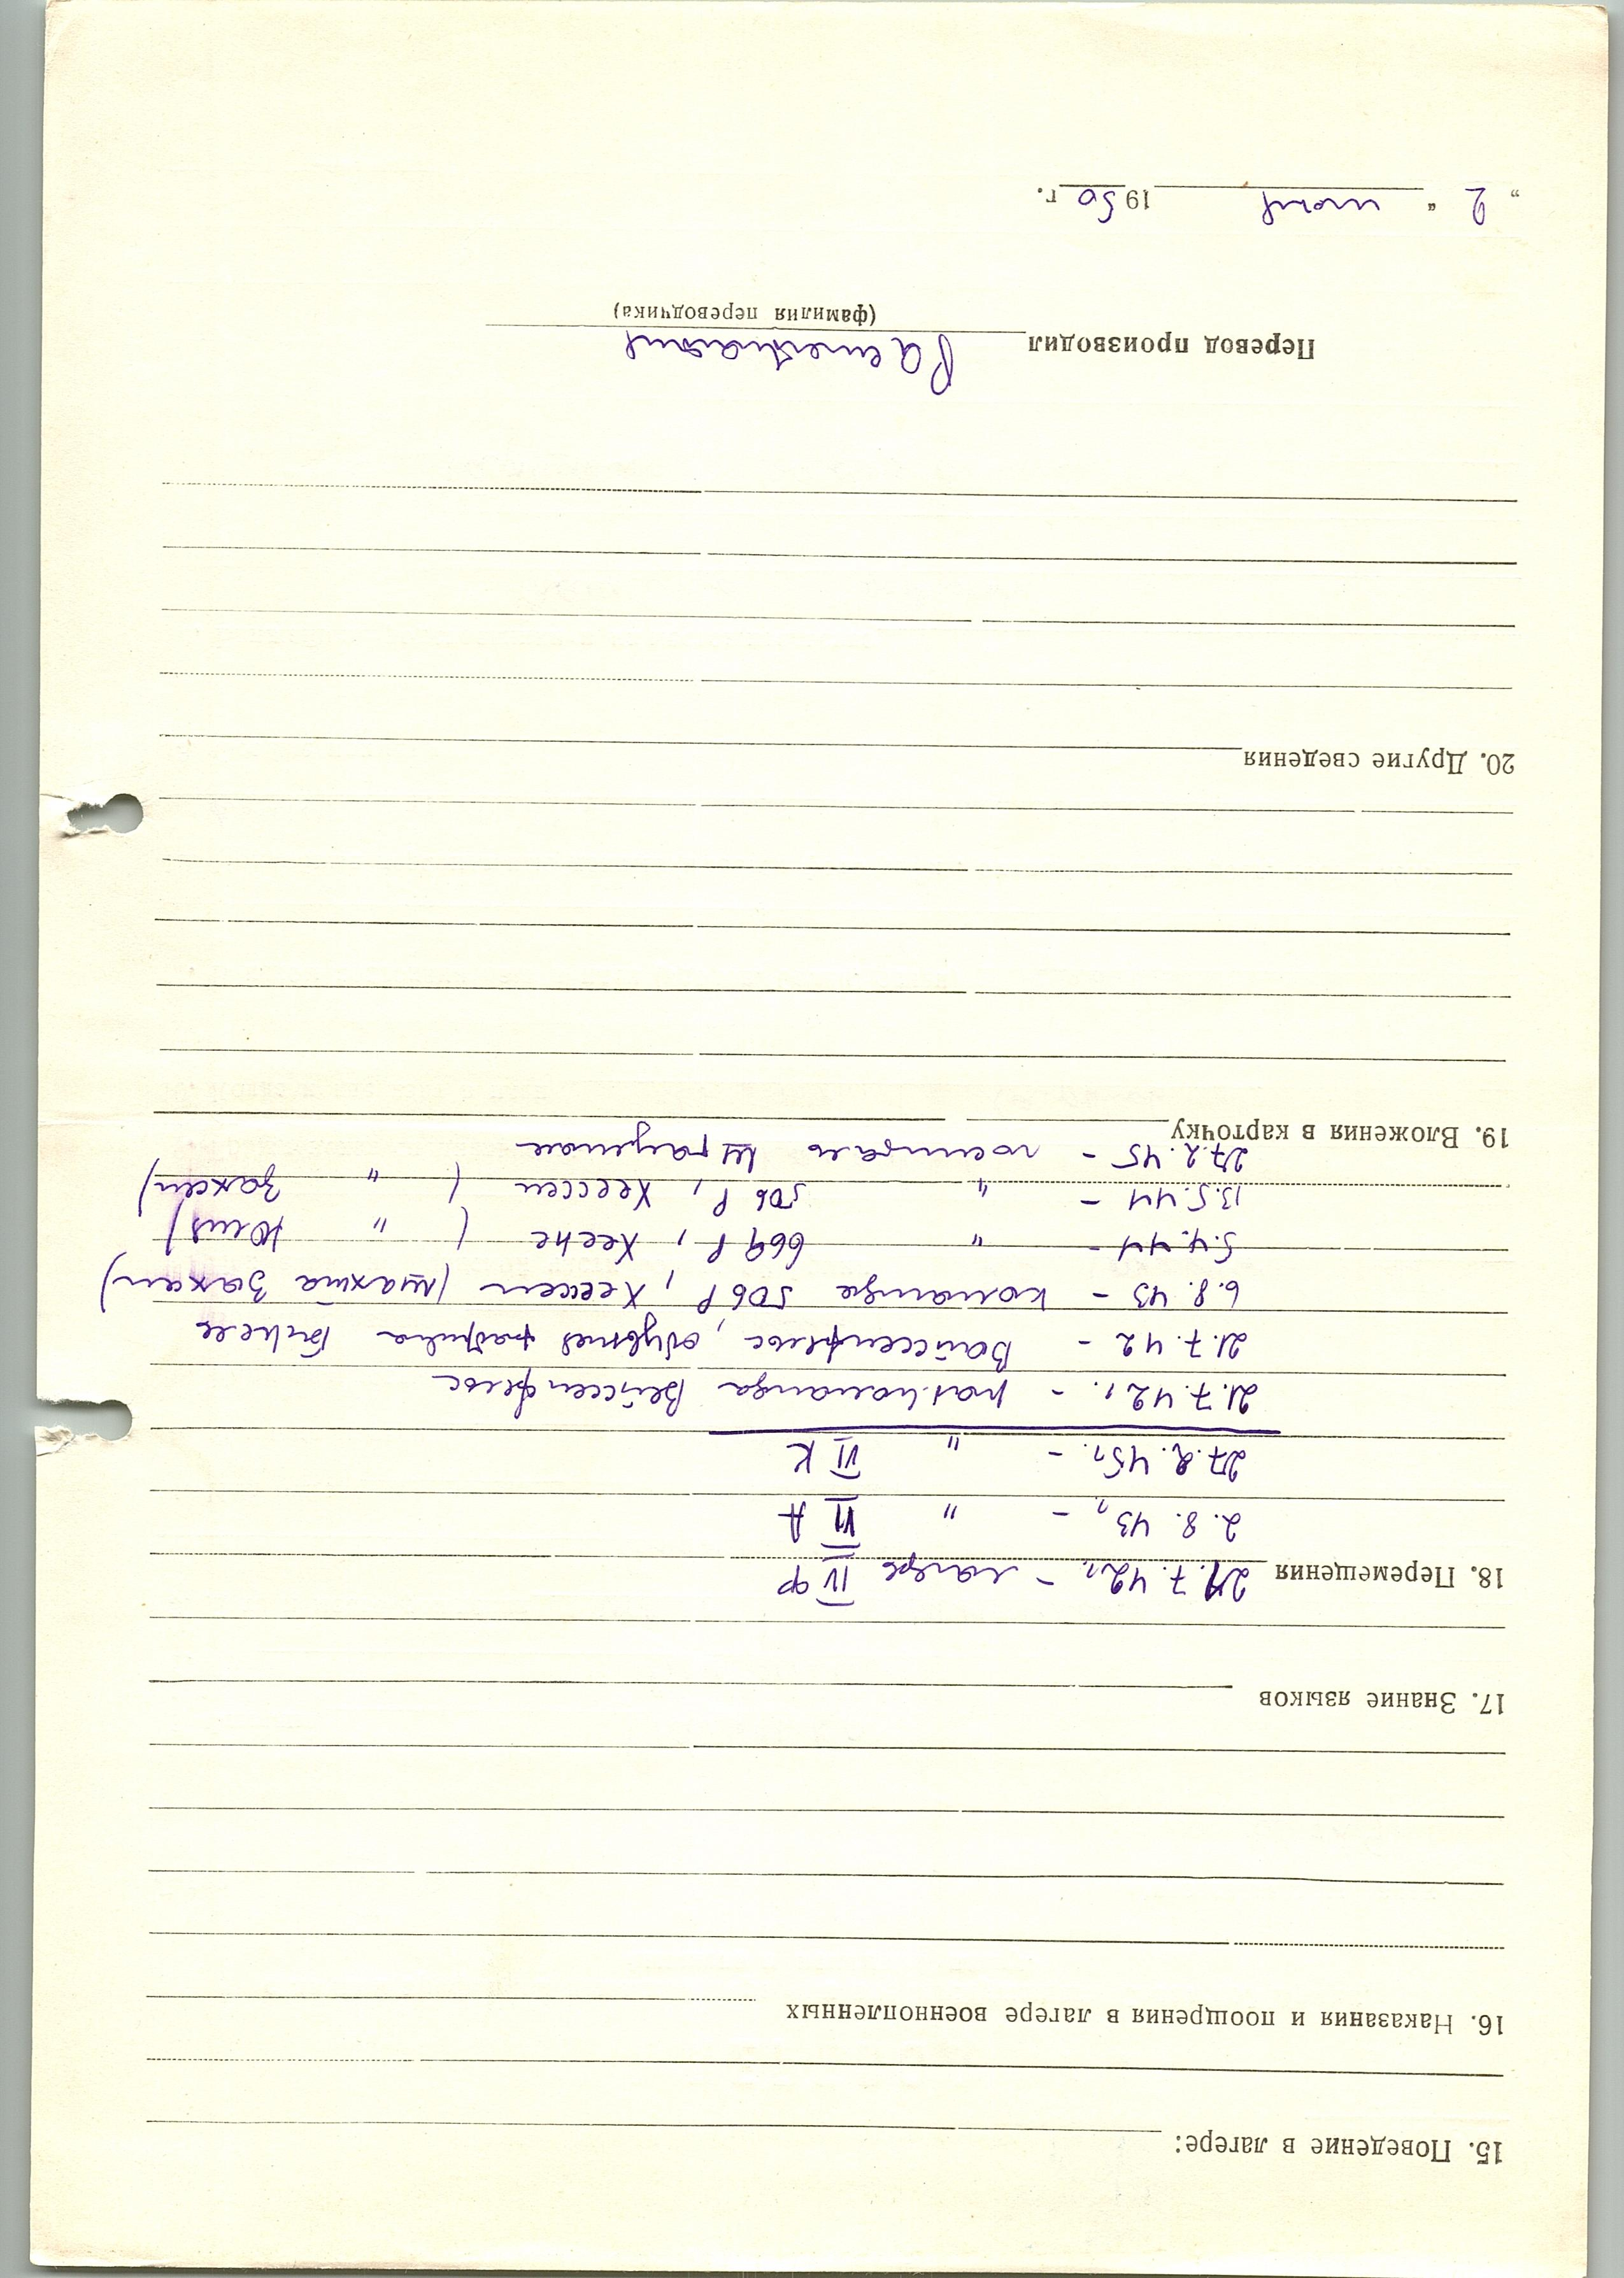 15. Поведение в лагере:
16. Наказания и поощрения в лагере военнопленных
17. Знание языков
18. Перемещения 21.7.42г. – лагерь IV ф
2.8.43г. – " VI А
27.2.45г. – " VI К
21.7.42г. – раб. команда Вейссенфельс
21.7.42 – Вайссенфельс, обувная фабрика
6.8.43 – команда 506 Р, Хессен (шахта Захсен)
5.4.44 – " 669 Р, (" )
13.5.44 – " 506 Р, Хессен (" Захсен)
27.2.45 – госпиталь
19. Вложения в карточку
20. Другие сведения
Перевод производил
(фамилия переводчика)
„ 2 “ 1950 г.